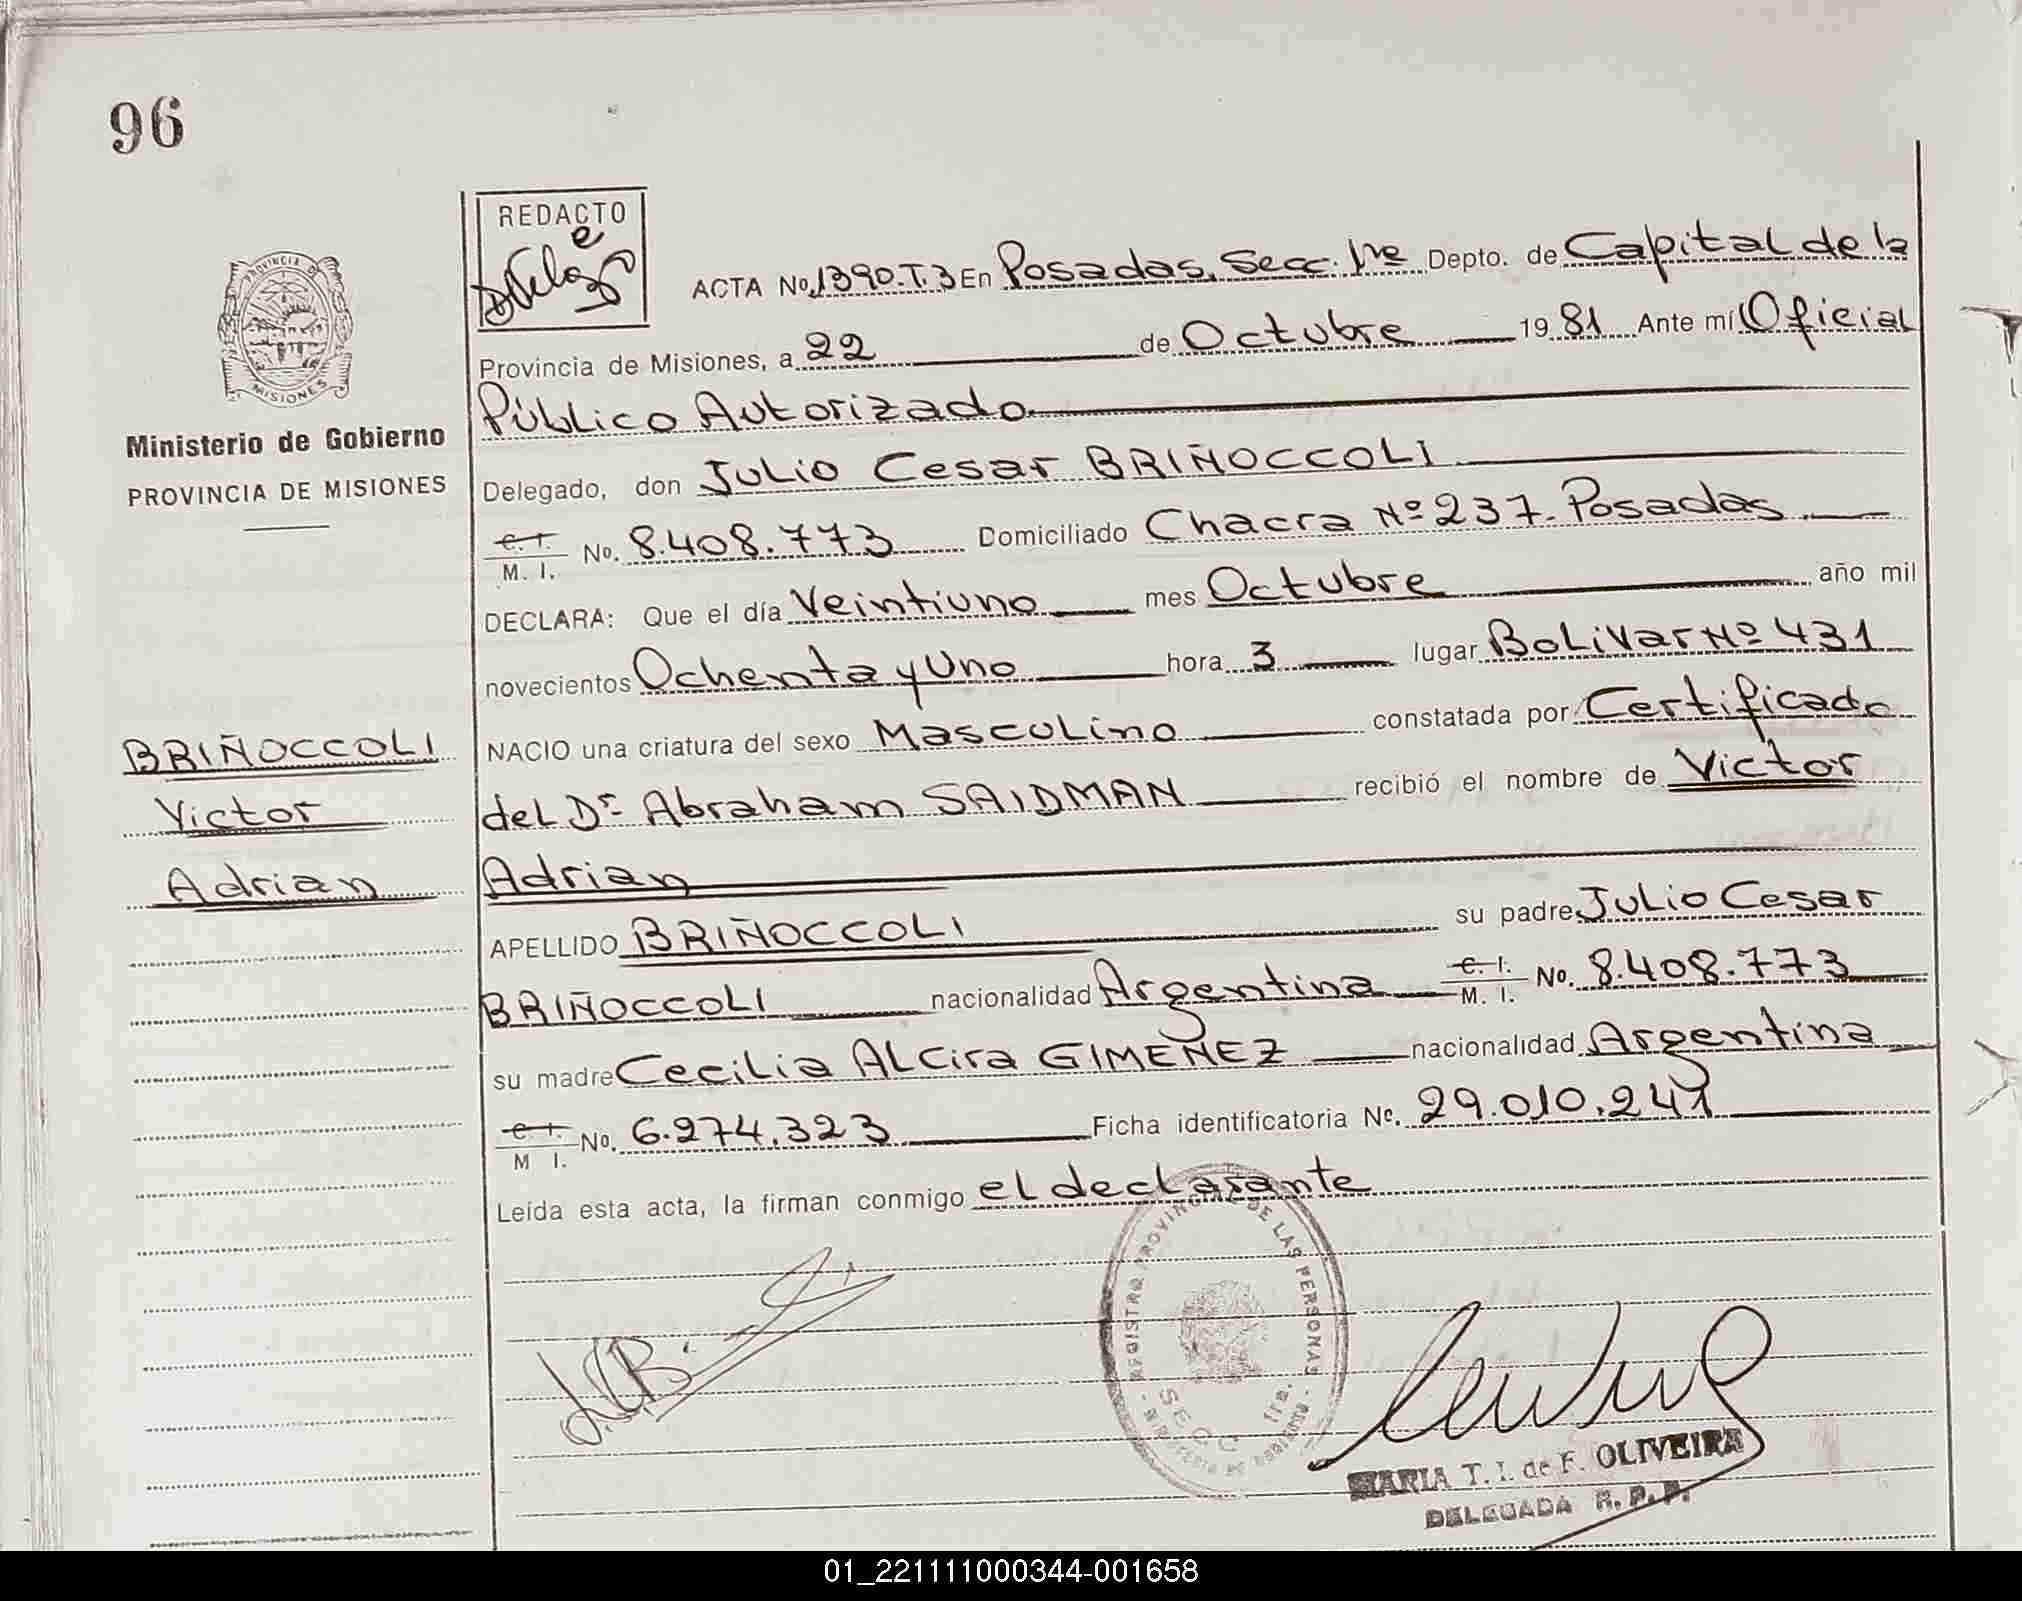 96
REDACTO
ACTA No. 1390.T.3 En Posadas, Secc. 1ra Depto. de Capital de la
Provincia de Misiones, a 22 de Octubre 1981 Ante mí Oficial
Público Autorizado
Delegado, don Julio Cesar BRIÑOCCOLI
C. I. M. I. No. 8.408.773 Domiciliado Chacra Nº 237. Posadas
DECLARA: Que el día Veintiuno mes Octubre año mil
novecientos Ochenta y Uno hora 3 lugar Bolivar Nº 431
NACIO una criatura del sexo Masculino constatada por Certificado
del Dr Abraham SAIDMAN recibió el nombre de Victor
Adrian
APELLIDO BRIÑOCCOLI su padre Julio Cesar
BRIÑOCCOLI nacionalidad Argentina C. I. M. I. No. 8.408.773
su madre Cecilia Alcira GIMENEZ nacionalidad Argentina
C. I. M I. No. 6.274.323 Ficha identificatoria No. 29.010.241
Leída esta acta, la firman conmigo el declarante
PROVINCIA DE
MISIONES
Ministerio de Gobierno
PROVINCIA DE MISIONES
BRIÑOCCOLI
Victor
Adrian
J.C.B.
REGISTRO PROVINCIAL DE LAS PERSONAS
SECC. 1ra.
MINISTERIO DE GOBIERNO
MARIA T. I. de F. OLIVEIRA
DELEGADA R. P. P.
01_221111000344-001658